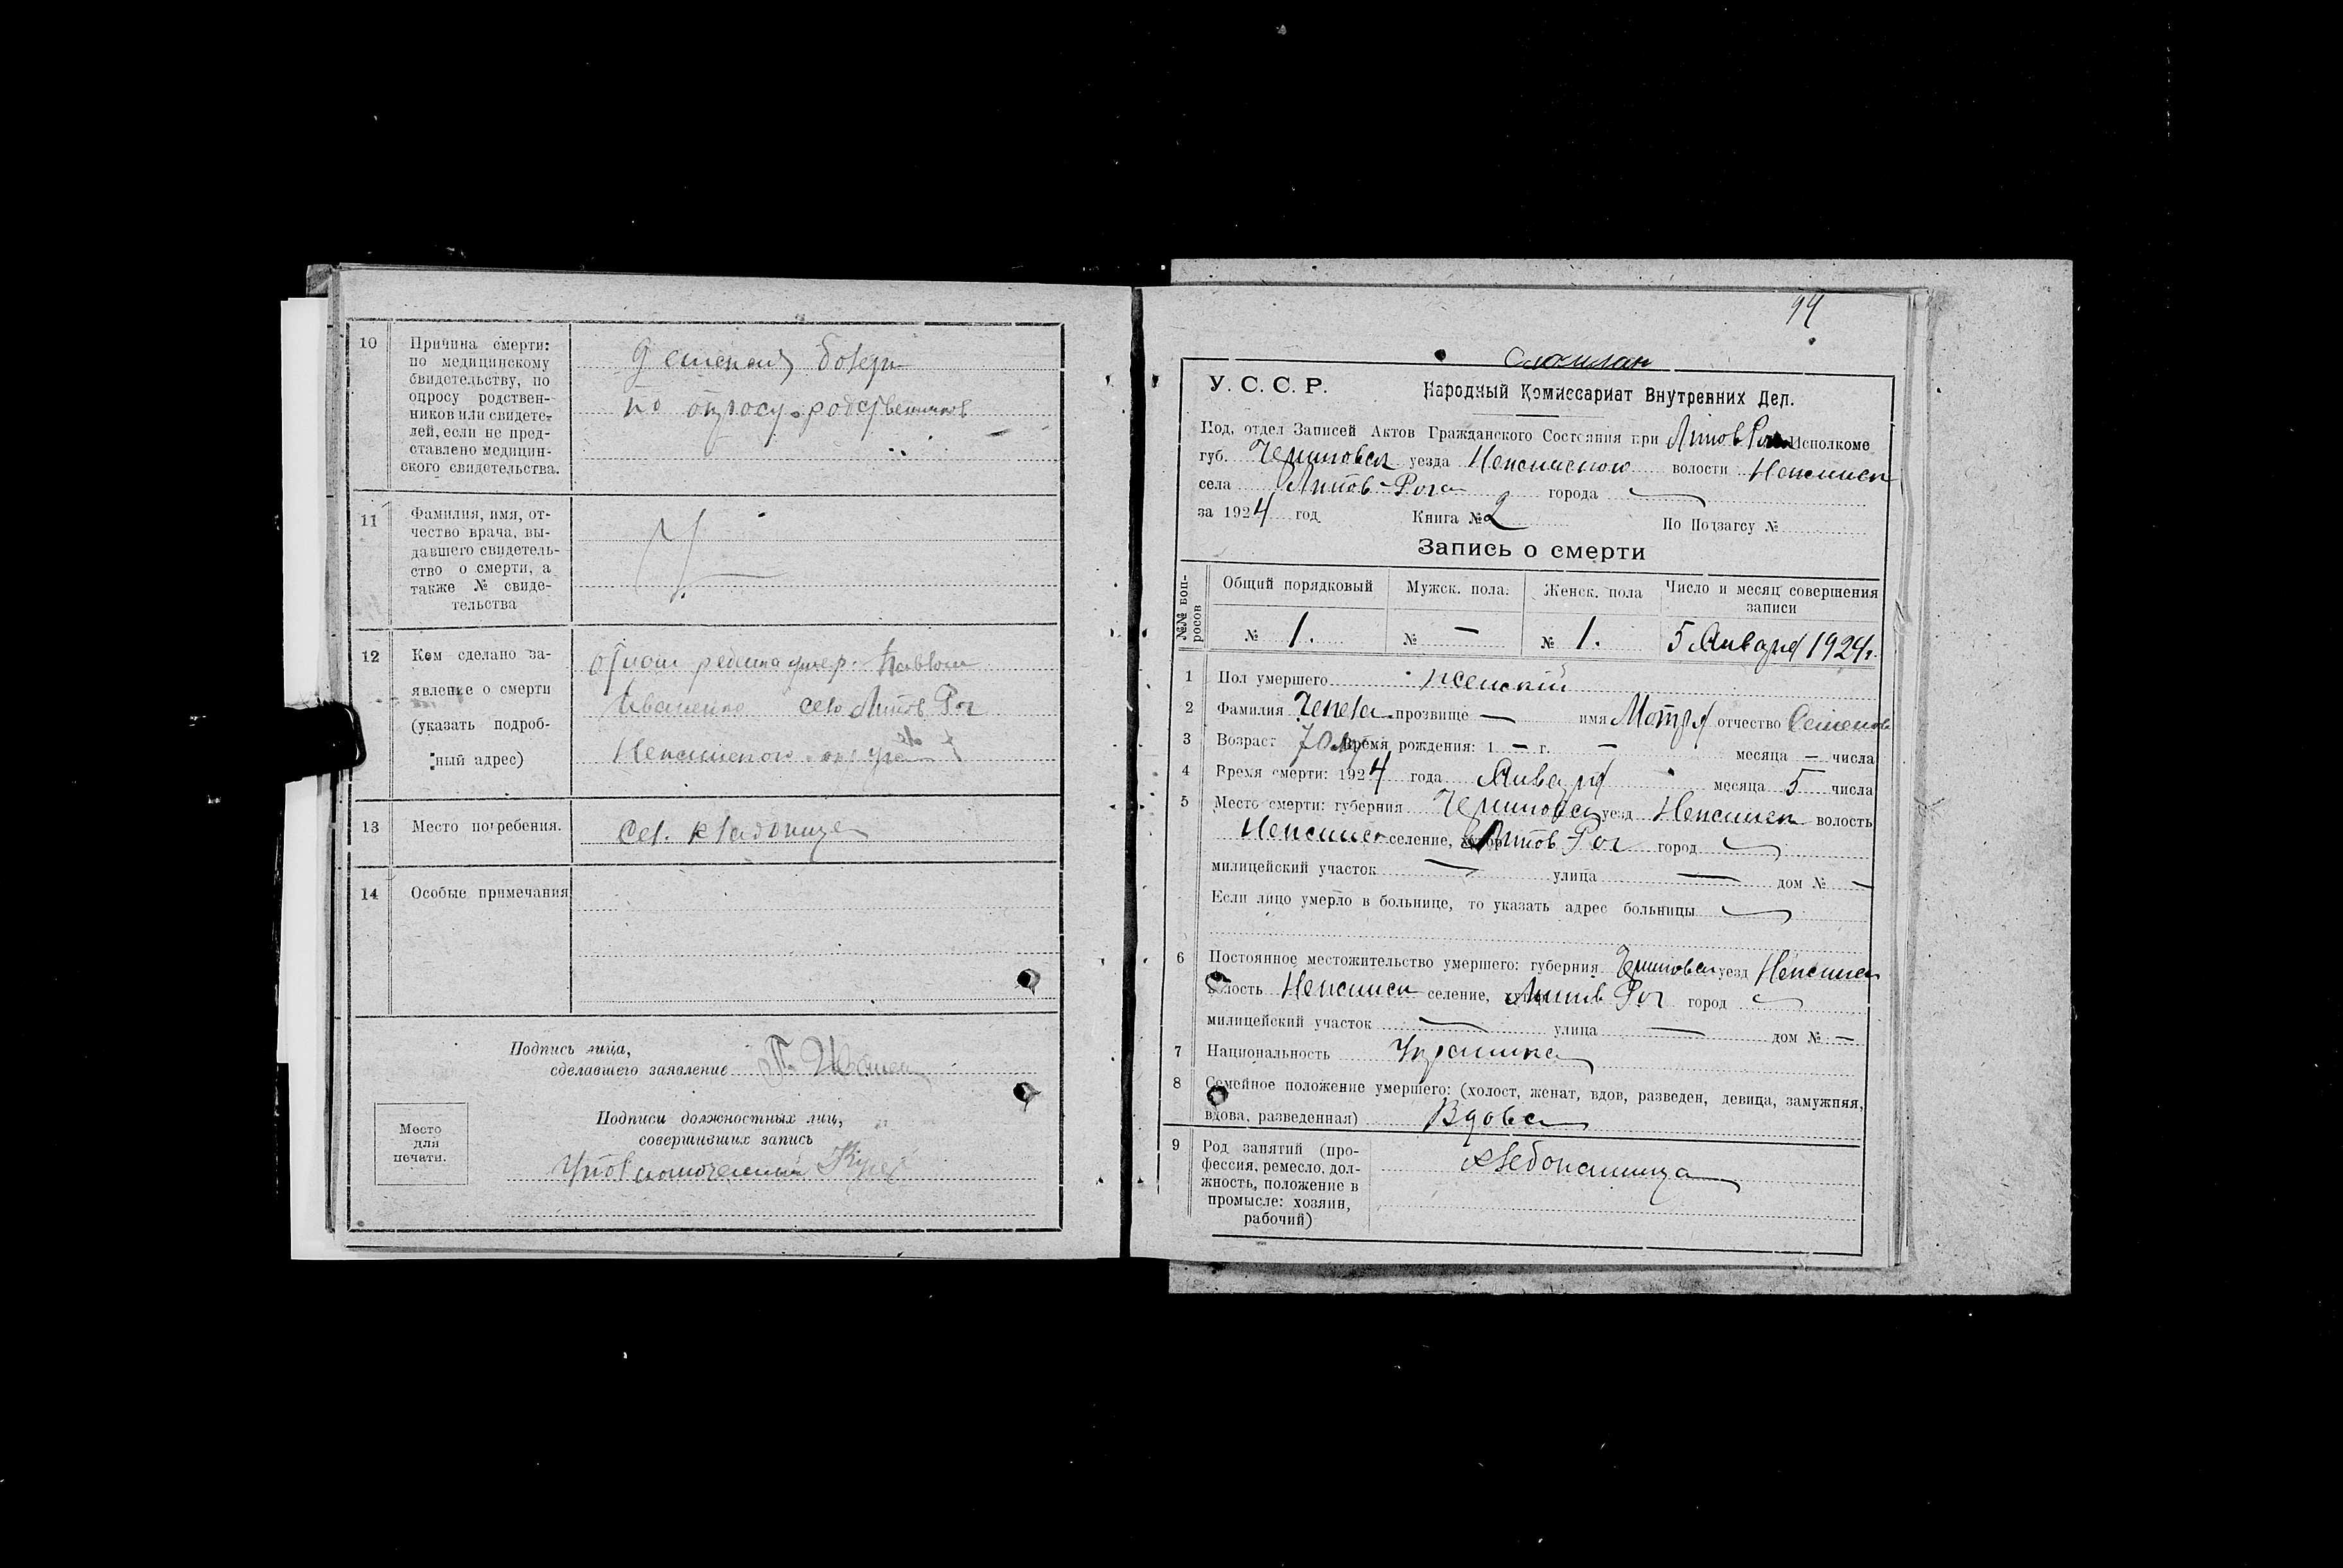 10 Причина смерти:
по медицинскому
свидетельству, по
опросу родствен-
ников или свидете-
лей, если не пред-
ставлено медицин-
ского свидетельства.
по опросу родственников
11 Фамилия, имя, от-
чество врача, вы-
давшего свидетель-
ство о смерти, а
также № свиде-
тельства
12 Кем сделано за-
явление о смерти
(указать подроб-
ный адрес)
отцом ребенка умер. Павлом
Иваненко село Липов Рог
Неженского
13 Место погребения. Сел. кладбище
14 Особые примечания
Подпись лица,
сделавшего заявление П. Иванен
Место
для
печати.
Подписи должностных лиц,
совершивших запись
Уполномоченный
94
У. С. С. Р. Народный Комиссариат Внутренних Дел.
Под. отдел Записей Актов Гражданского Состояния при Липов Рог Исполкоме
губ. Черниговск уезда Неженского волости Неженск
села Липов-Рога города —
за 1924 год Книга № 2 По Подзагсу №
Запись о смерти
№№ воп-
росов
Общий порядковый Мужск. пола. Женск. пола Число и месяц совершения
записи
№ 1. № — № 1. 5 Января 1924 г.
1 Пол умершего женский
2 Фамилия Чепела прозвище — имя Мотря отчество Семенов
3 Возраст 70 л Время рождения: 1 — г. — месяца — числа
4 Время смерти: 1924 года Января месяца 5 числа
5 Место смерти: губерния Черниговск уезд Неженск волость
Неженск селение, хутор Липов Рог город —
милицейский участок — улица — дом № —
Если лицо умерло в больнице, то указать адрес больницы —
6 Постоянное местожительство умершего: губерния Черниговск уезд Неженск
волость Неженск селение, хутор Липов Рог город —
милицейский участок — улица — дом № —
7 Национальность Украинка
8 Семейное положение умершего: (холост, женат, вдов, разведен, девица, замужняя,
вдова, разведенная) Вдова
9 Род занятий (про-
фессия, ремесло, дол-
жность, положение в
промысле: хозяин,
рабочий)
хлебопашица